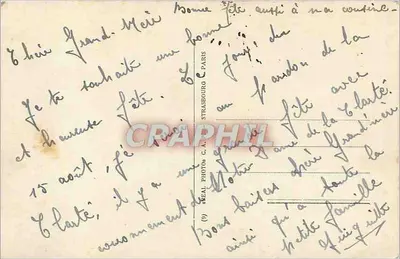 Bonne fête aussi à ma cousine
Chère Grand-Mère
Je te souhaite une bonne
et heureuse fête. Le jour du
15 août, j'é au pardon de la
Clarté, il y a une grande fête avec
couronnement de Notre Dame de la Clarté.
Bons baisers chère Grand'mère
ainsi qu'à toute la
petite famille
(S) REAL PHOTOS C. A. STRASBOURG PARIS
CRAPHIL